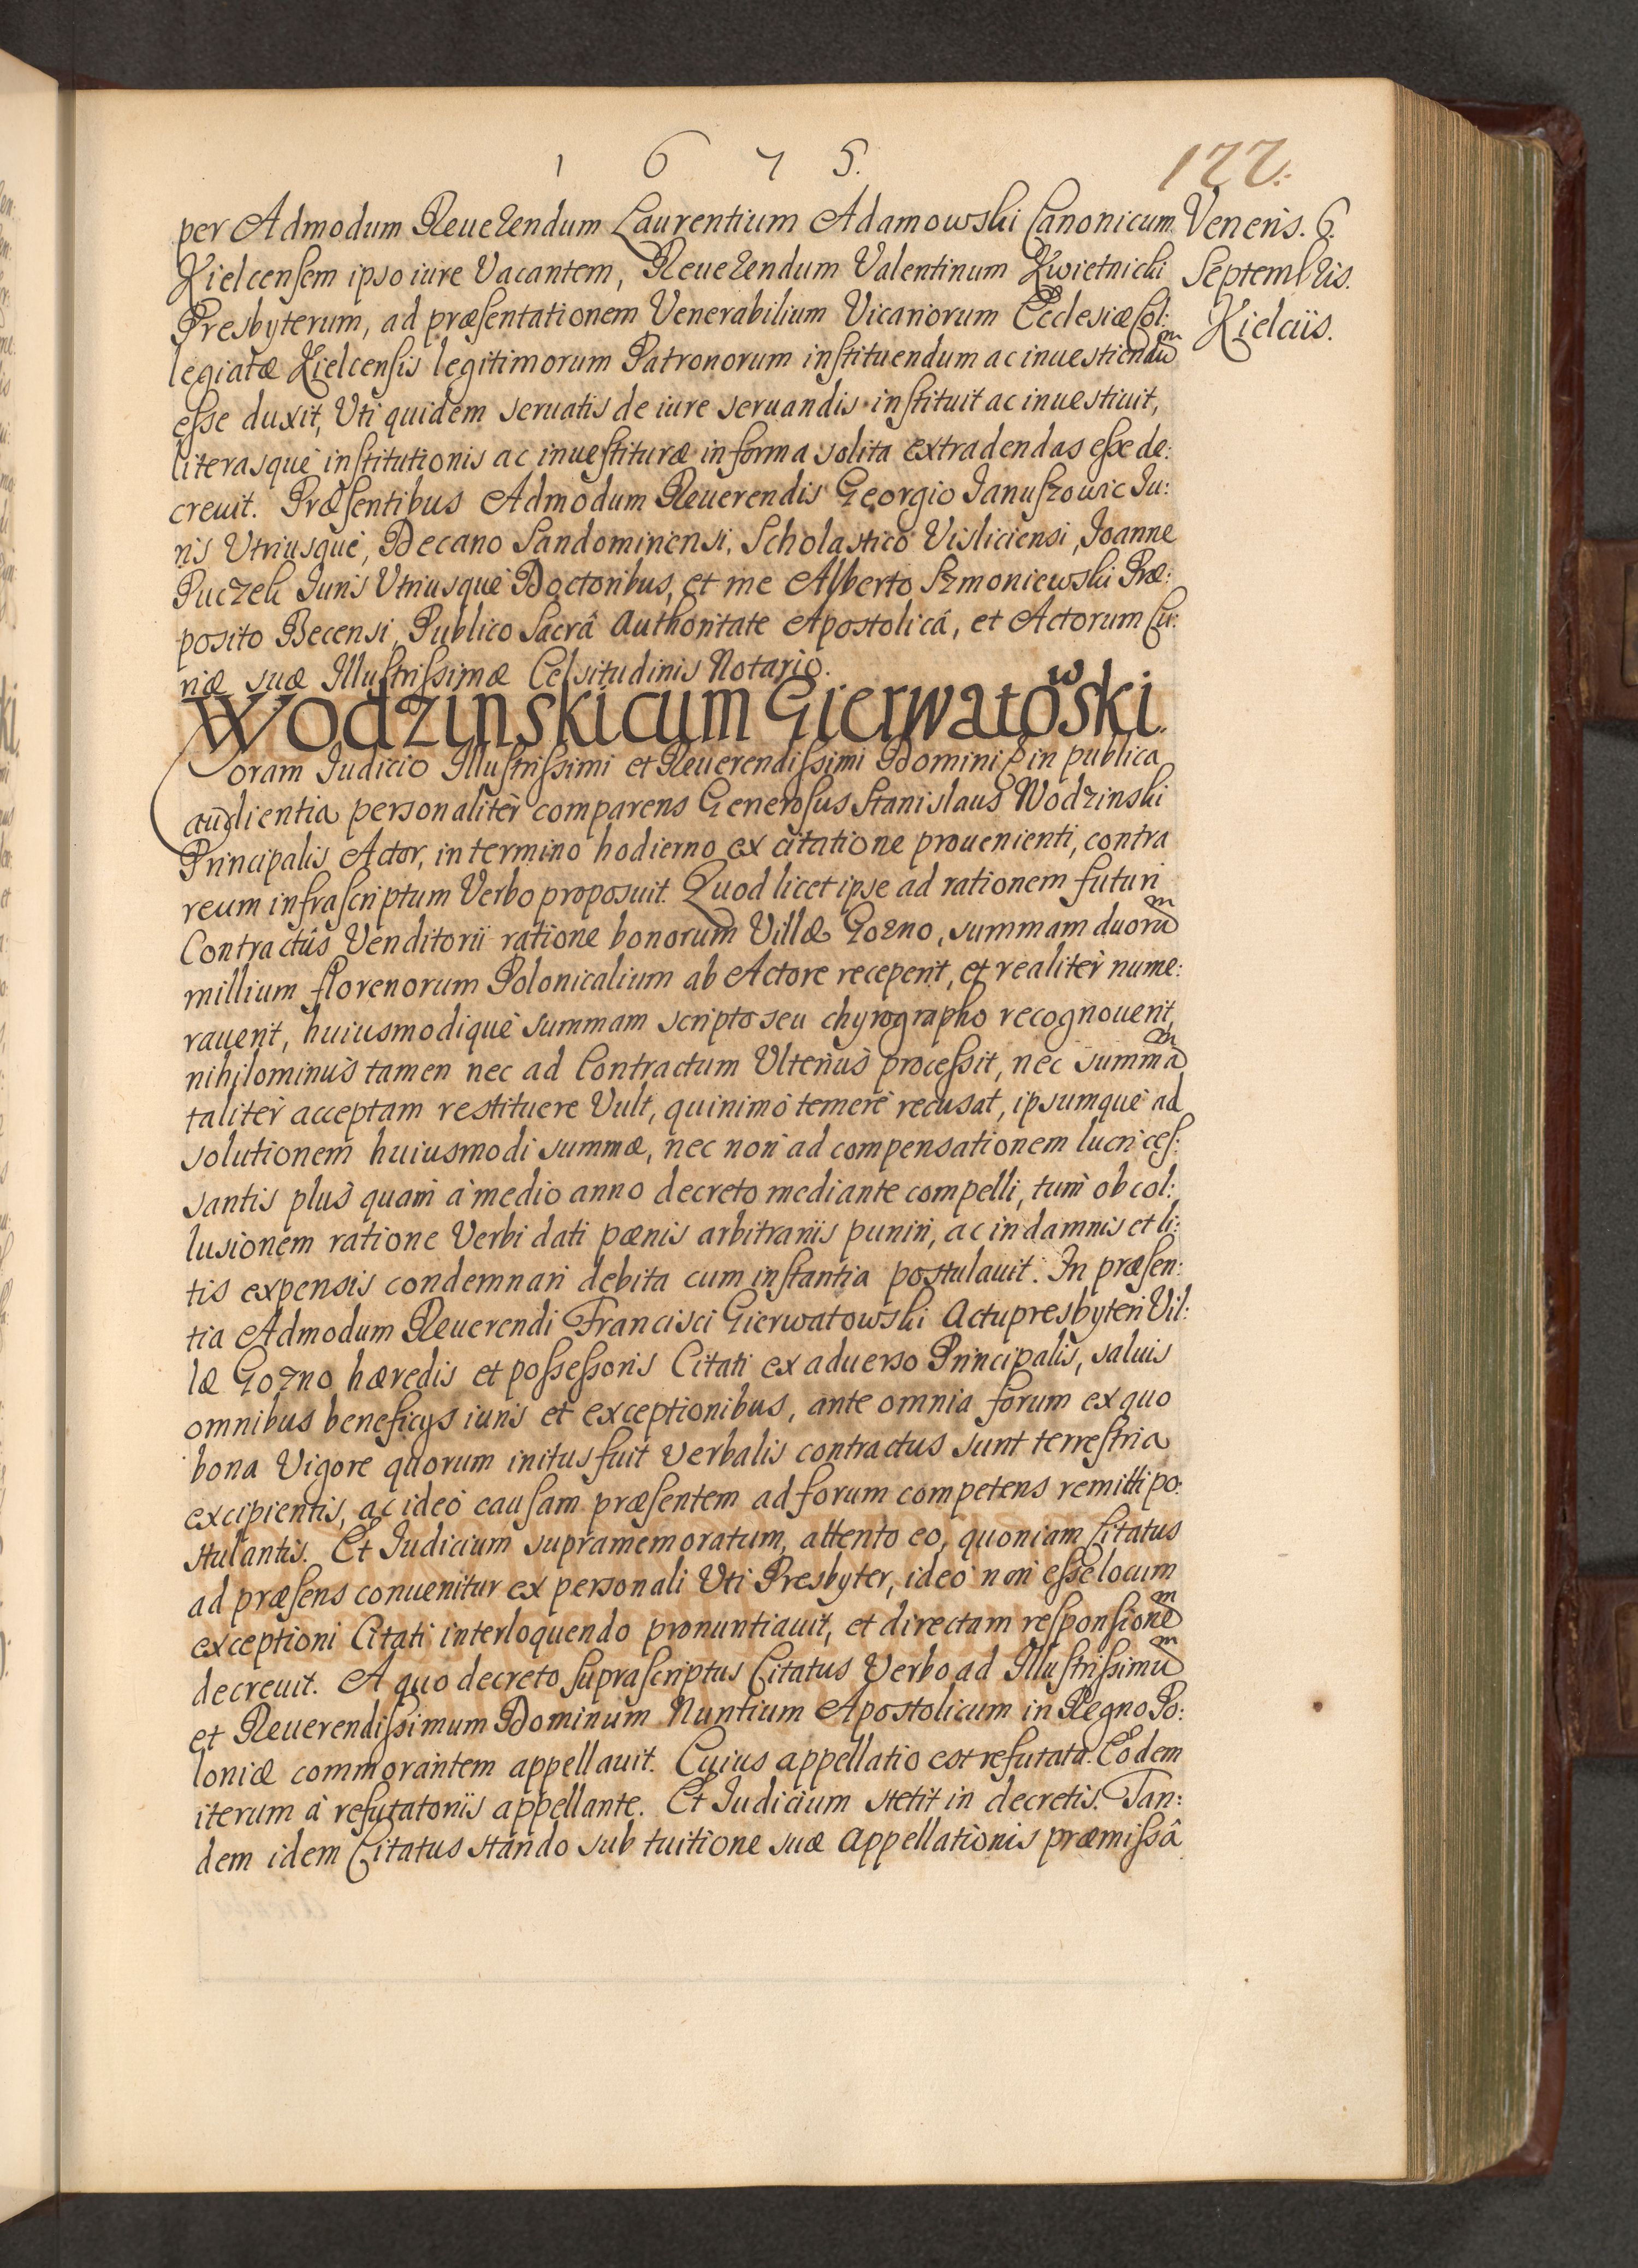 1 6 7 5.
122.
per Admodum Reuerendum Laurentium Adamowski Canonicum
Kielcensem ipso iure Vacantem, Reuerendum Valentinum Kwietnicki
Presbyterum, ad præsentationem Venerabilium Vicariorum Ecclesiæ Col:
legiatæ Kielcensis legitimorum Patronorum instituendum ac inuestiendum
esse duxit, Vti quidem seruatis de iure seruandis instituit ac inuestiuit,
literasque institutionis ac inuestituræ in forma solita extradendas esse de:
creuit. Præsentibus Admodum Reuerendis Georgio Ianuszowic Iu:
ris Vtriusque, Decano Sandomiriensi, Scholastico Visliciensi, Ioanne
Puczek Iuris Vtriusque Doctoribus, et me Alberto Szmoniewski Præ:
posito Becensi, Publico Sacrâ Authoritate Apostolicâ, et Actorum Cu:
riæ suæ Illustrissimæ Celsitudinis Notario.
Veneris. 6.
Septembris.
Kielciis.
Wodzinski cum Gierwatowski.
Coram Iudicio Illustrissimi et Reuerendissimi Domini in publica
audientia personalitèr comparens Generosus Stanislaus Wodzinski
Principalis Actor, in termino hodierno ex citatione prouenienti, contra
reum infrascriptum Verbo proposuit. Quod licet ipse ad rationem futuri
Contractûs Venditorii ratione bonorum Villæ Gozno, summam duorum
millium florenorum Polonicalium ab Actore receperit, et realitèr nume:
rauerit, huiusmodique summam scripto seu chyrographo recognouerit,
nihilominùs tamen nec ad Contractum Vlteriùs processit, nec summam
talitèr acceptam restituere Vult, quinimò temerè recusat, ipsumque ad
solutionem huiusmodi summæ, nec non ad compensationem lucri ces:
santis plùs quàm à medio anno decreto mediante compelli, tùm ob col:
lusionem ratione Verbi dati pœnis arbitrariis puniri, ac in damnis et li:
tis expensis condemnari debita cum instantia postulauit. In præsen:
tia Admodum Reuerendi Francisci Gierwatowski Actupresbyteri Vil:
læ Gozno hæredis et possessoris Citati ex aduerso Principalis, saluis
omnibus beneficys iuris et exceptionibus, ante omnia forum ex quo
bona Vigore quorum initus fuit Verbalis contractus sunt terrestria
excipientis, ac ideò causam præsentem ad forum competens remitti po:
stulantis. Et Iudicium supramemoratum, attento eo, quoniam Citatus
ad præsens conuenitur ex personali Vti Presbyter, ideò non esse locum
exceptioni Citati interloquendo pronuntiauit, et directam responsionem
decreuit. A quo decreto suprascriptus Citatus Verbo ad Illustrissimum
et Reuerendissimum Dominum Nuntium Apostolicum in Regno Po:
loniæ commorantem appellauit. Cuius appellatio est refutata. Eodem
iterum à refutatoriis appellante. Et Iudicium stetit in decretis. Tan:
dem idem Citatus stando sub tuitione suæ Appellationis præmissâ